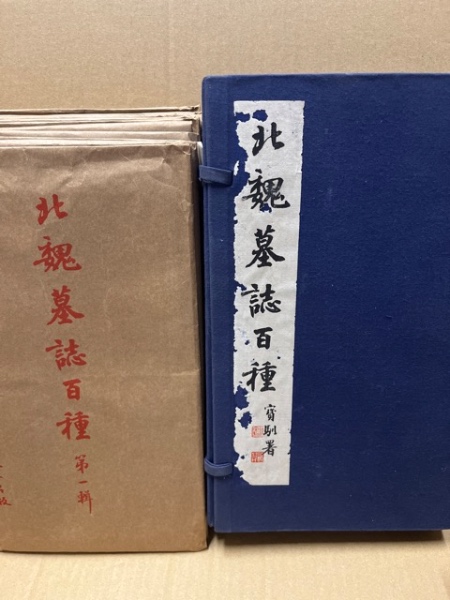 北魏墓誌百種
第一輯
北魏墓誌百種
寶馴署